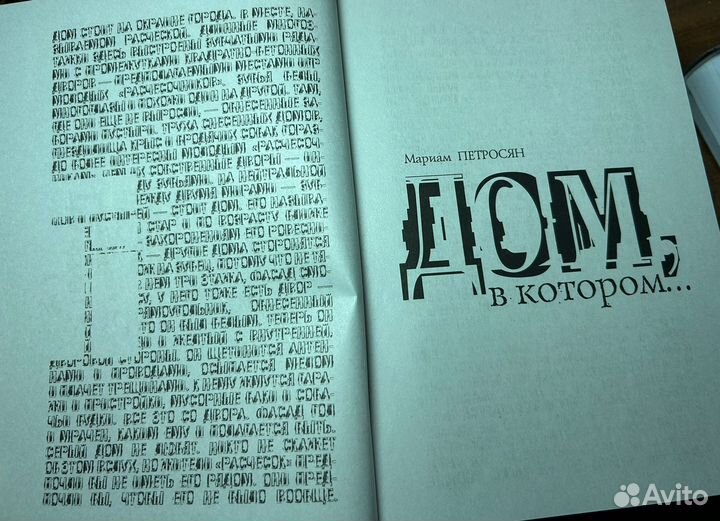 ДОМ СТОИТ НА ОКРАИНЕ ГОРОДА. В МЕСТЕ, НА-
ЗЫВАЕМОМ РАСЧЕСКОЙ. ДЛИННЫЕ МНОГО-
ЭТАЖКИ ЗДЕСЬ ВЫСТРОЕНЫ ЗУБЧАТЫМИ РЯДА-
МИ С ПРОМЕЖУТКАМИ КВАДРАТНО-БЕТОННЫХ
ДВОРОВ — ПРЕДПОЛАГАЕМЫМИ МЕСТАМИ ИГР
МОЛОДЫХ «РАСЧЕСОЧНИКОВ». ЗУБЬЯ БЕЛЫ,
МНОГОГЛАЗЫ И ПОХОЖИ ОДИН НА ДРУГОЙ. ТАМ,
ГДЕ ОНИ ЕЩЕ НЕ ВЫРОСЛИ, — ОБНЕСЕННЫЕ ЗА-
БОРАМИ ПУСТЫРИ. ТРУХА СНЕСЕННЫХ ДОМОВ,
ГНЕЗДИЛИЩА КРЫС И БРОДЯЧИХ СОБАК ГОРАЗ-
ДО БОЛЕЕ ИНТЕРЕСНЫ МОЛОДЫМ «РАСЧЕСОЧ-
НИКАМ», ЧЕМ ИХ СОБСТВЕННЫЕ ДВОРЫ — ИН-
ДУ ЗУБЬЯМИ. НА НЕЙТРАЛЬНОЙ
ЕЖДУ ДВУМЯ МИРАМИ — ЗУБ-
ЦОВ И ПУСТЫРЕЙ — СТОИТ ДОМ. ЕГО НАЗЫВА-
СТАР И ПО ВОЗРАСТУ БЛИЖЕ
ЗАХОРОНЕНИЯМ ЕГО РОВЕСНИ-
— ДРУГИЕ ДОМА СТОРОНЯТСЯ
ОЖ НА ЗУБЕЦ, ПОТОМУ ЧТО НЕ ТЯ-
НЕМ ТРИ ЭТАЖА, ФАСАД СМО-
У, У НЕГО ТОЖЕ ЕСТЬ ДВОР —
РЯМОУГОЛЬНИК, ОБНЕСЕННЫЙ
ТО ОН БЫЛ БЕЛЫМ. ТЕПЕРЬ ОН
И ЖЕЛТЫЙ С ВНУТРЕННЕЙ,
ДВОРОВОЙ СТОРОНЫ. ОН ЩЕТИНИТСЯ АНТЕН-
НАМИ И ПРОВОДАМИ, ОСЫПАЕТСЯ МЕЛОМ
И ПЛАЧЕТ ТРЕЩИНАМИ. К НЕМУ ЖМУТСЯ ГАРА-
ЖИ И ПРИСТРОЙКИ, МУСОРНЫЕ БАКИ И СОБА-
ЧЬИ БУДКИ. ВСЕ ЭТО СО ДВОРА. ФАСАД ГОЛ
И МРАЧЕН, КАКИМ ЕМУ И ПОЛАГАЕТСЯ БЫТЬ.
СЕРЫЙ ДОМ НЕ ЛЮБЯТ. НИКТО НЕ СКАЖЕТ
ОБ ЭТОМ ВСЛУХ, НО ЖИТЕЛИ «РАСЧЕСОК» ПРЕД-
ПОЧЛИ БЫ НЕ ИМЕТЬ ЕГО РЯДОМ. ОНИ ПРЕД-
ПОЧЛИ БЫ, ЧТОБЫ ЕГО НЕ БЫЛО ВООБЩЕ.
Мариам ПЕТРОСЯН
ДОМ,
в котором...
Avito